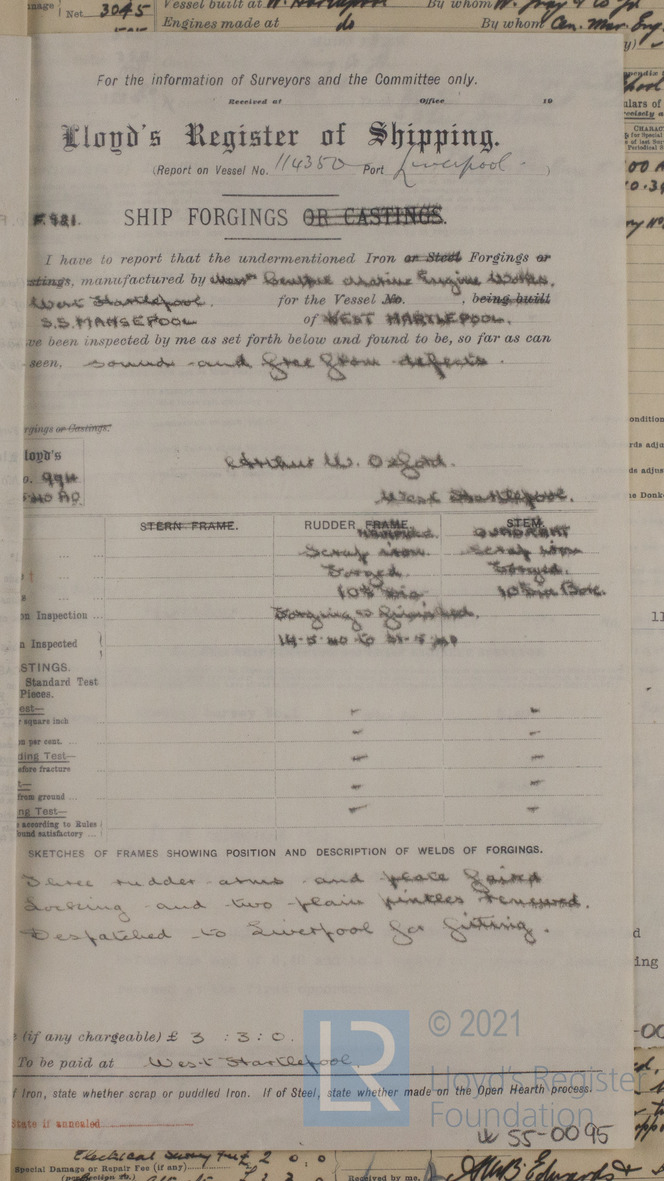 Net 3045
Vessel built at W. Hartlepool By whom W. Gray & Co Ld
Engines made at do By whom Cen. Mar. Eng.
For the information of Surveyors and the Committee only.
Received at Office 19
Lloyd's Register of Shipping.
(Report on Vessel No. 114350 Port Liverpool.)
F.921. SHIP FORGINGS OR CASTINGS.
I have to report that the undermentioned Iron or Steel Forgings or
stings, manufactured by Central Marine Engine Works,
West Hartlepool. for the Vessel No. , being built
S.S. MANSEPOOL of WEST HARTLEPOOL.
ve been inspected by me as set forth below and found to be, so far as can
seen, sound and free from defects.
rgings or Castings.
loyd's
o. 994
Arthur W. Oxford.
West Hartlepool.
STERN FRAME. RUDDER FRAME STEM
QUADRANT
Scrap iron. Scrap iron
Forged. Forged.
10 Dia Bore.
n Inspection ... Forging & finished.
n Inspected 14-5-40 to 31-5-40
STINGS.
Standard Test
Pieces.
est—
r square inch
n per cent. ...
ding Test—
efore fracture
t—
from ground ...
ng Test—
according to Rules
ound satisfactory ...
SKETCHES OF FRAMES SHOWING POSITION AND DESCRIPTION OF WELDS OF FORGINGS.
Three rudder arms and plate faired
Locking and two plain pintles renewed.
Despatched to Liverpool for fitting.
(if any chargeable) £ 3 : 3 : 0.
To be paid at West Hartlepool.
f Iron, state whether scrap or puddled Iron. If of Steel, state whether made on the Open Hearth process.
State if annealed
© 2021
LR
Lloyd's Register
Foundation
W 55-0095
Electrical Survey Fee £ 2 0 : 0
Special Damage or Repair Fee (if any)
Received by me,